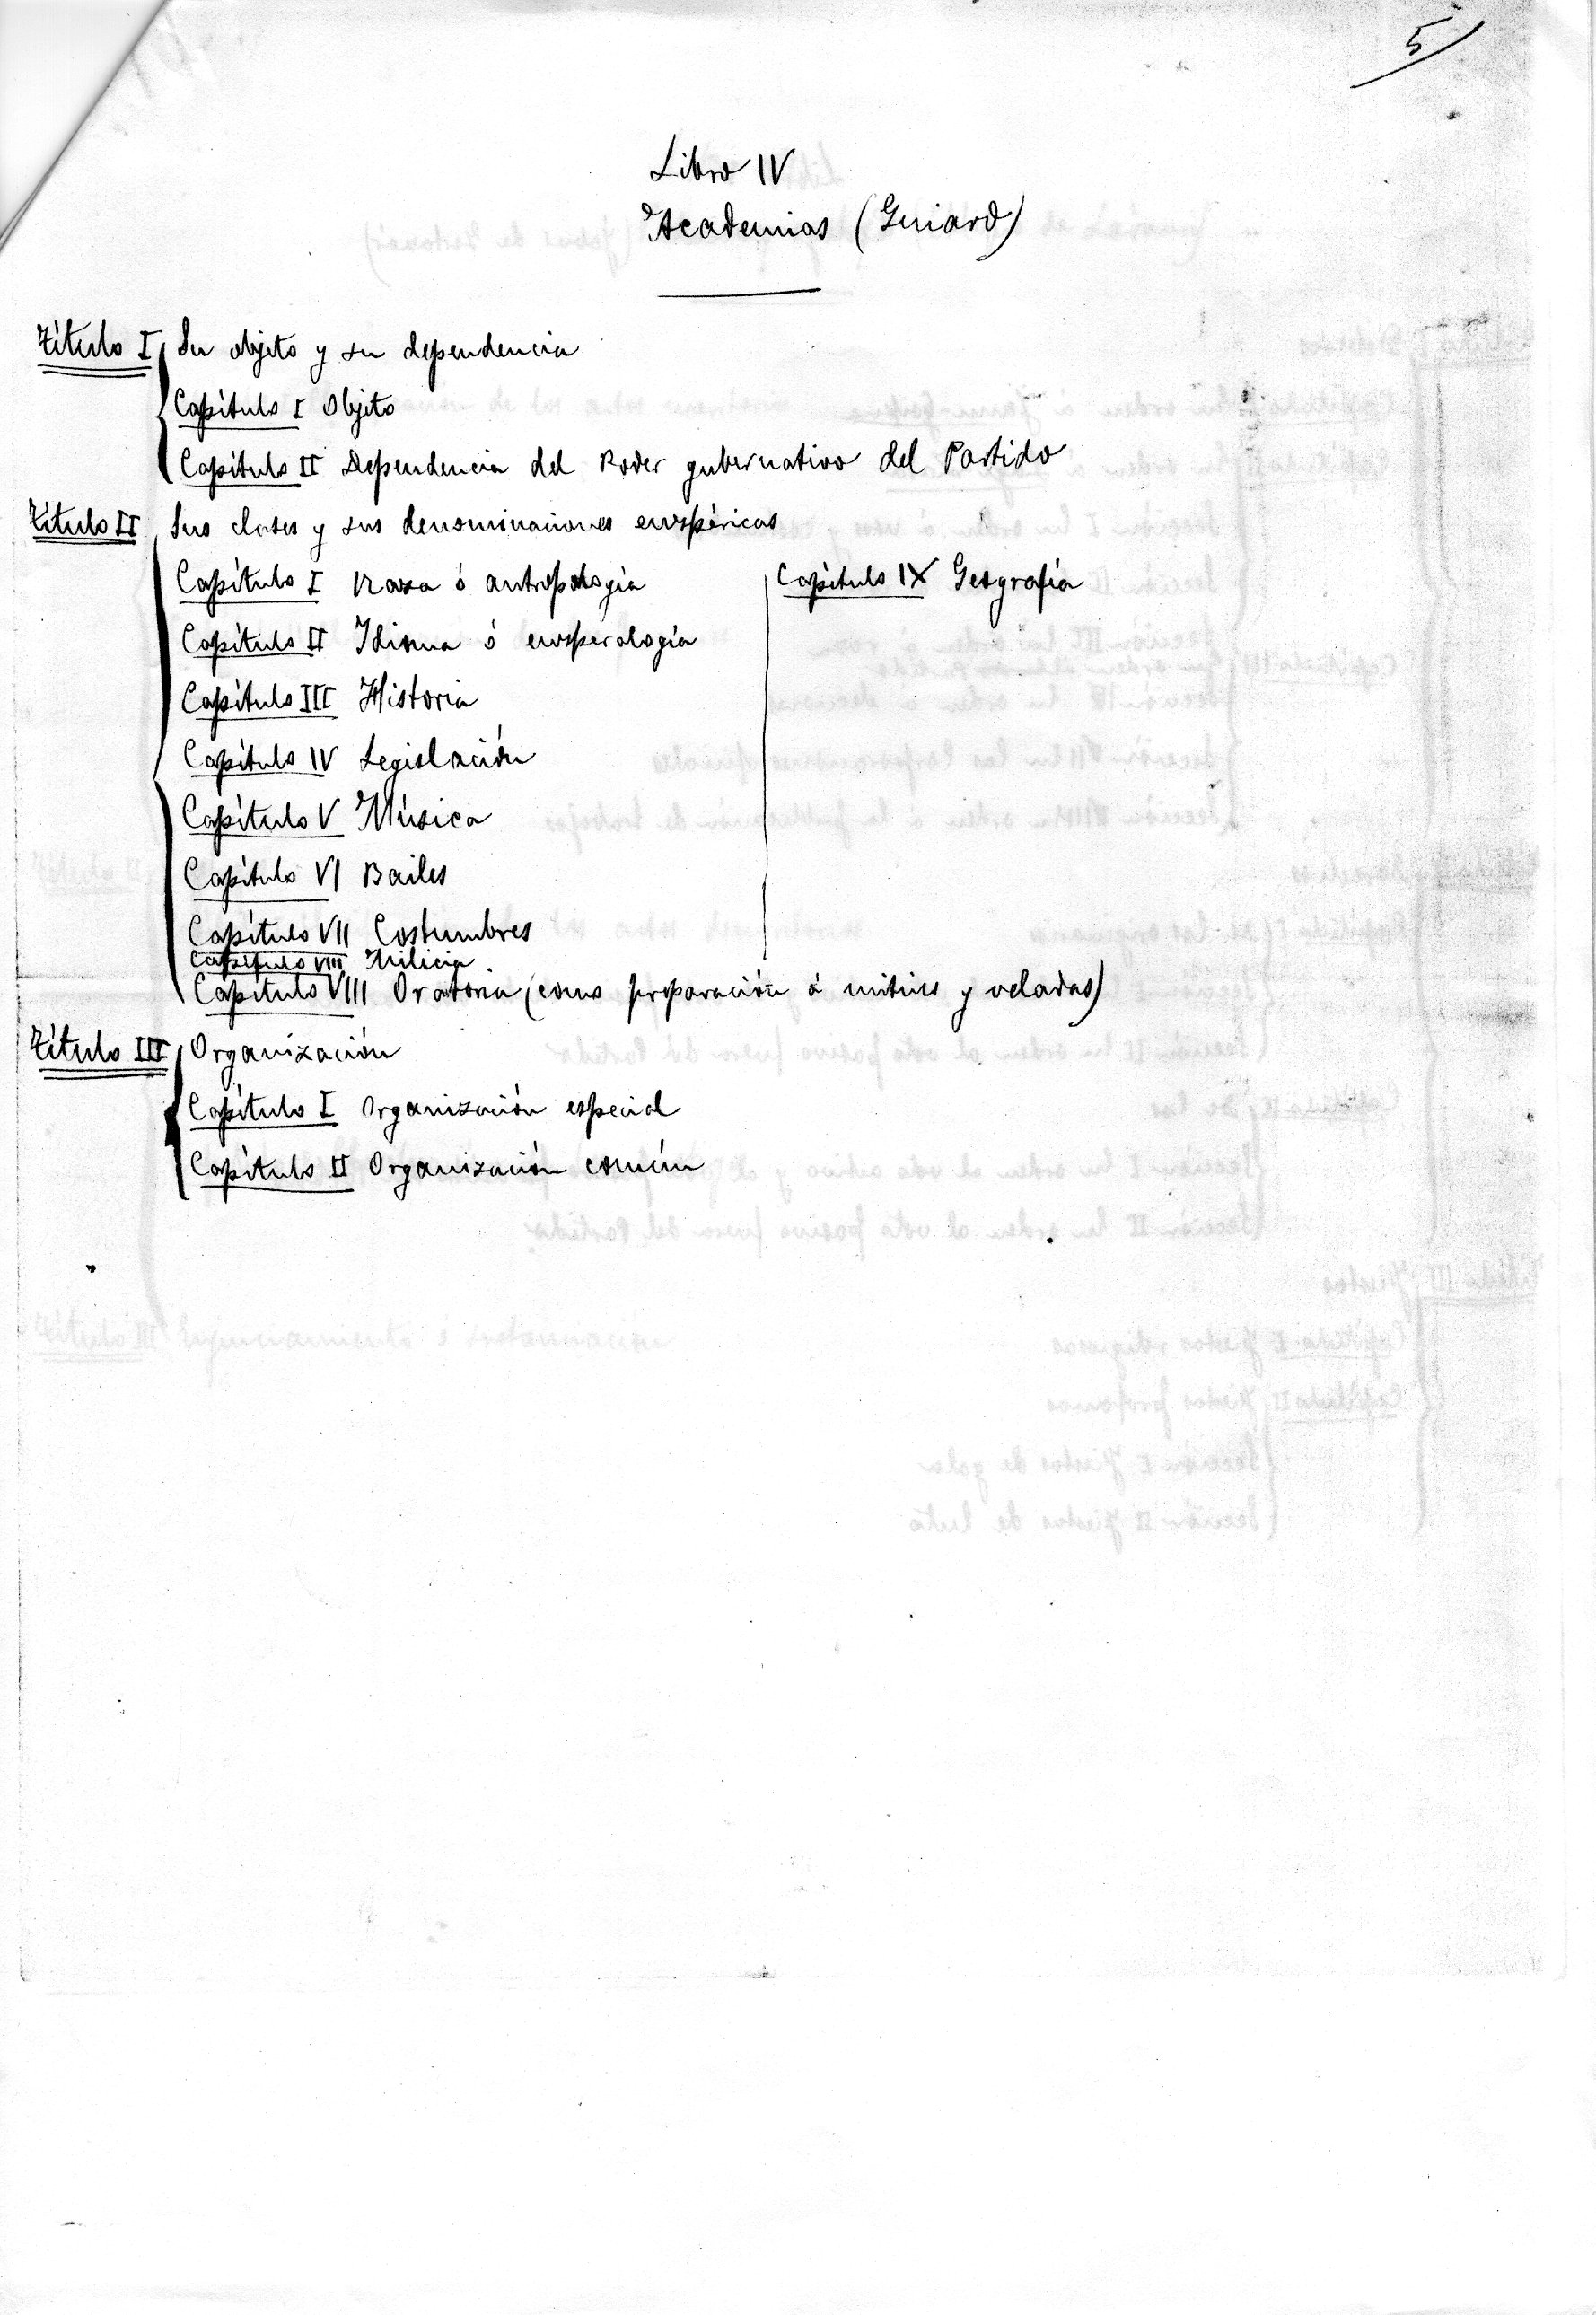 5
Libro IV
Academias (Guiard)
Título I Su objeto y su dependencia
Capítulo I Objeto
Capítulo II Dependencia del Poder gubernativo del Partido
Título II Sus clases y sus denominaciones euzpéricas
Capítulo I Raza ó antropología
Capítulo II Idioma ó euzperología
Capítulo III Historia
Capítulo IV Legislación
Capítulo V Música
Capítulo VI Bailes
Capítulo VII Costumbres
Capítulo VIII Milicia
Capítulo VIII Oratoria (como preparación á mitins y veladas)
Capítulo IX Geografía
Título III Organización
Capítulo I Organización especial
Capítulo II Organización común